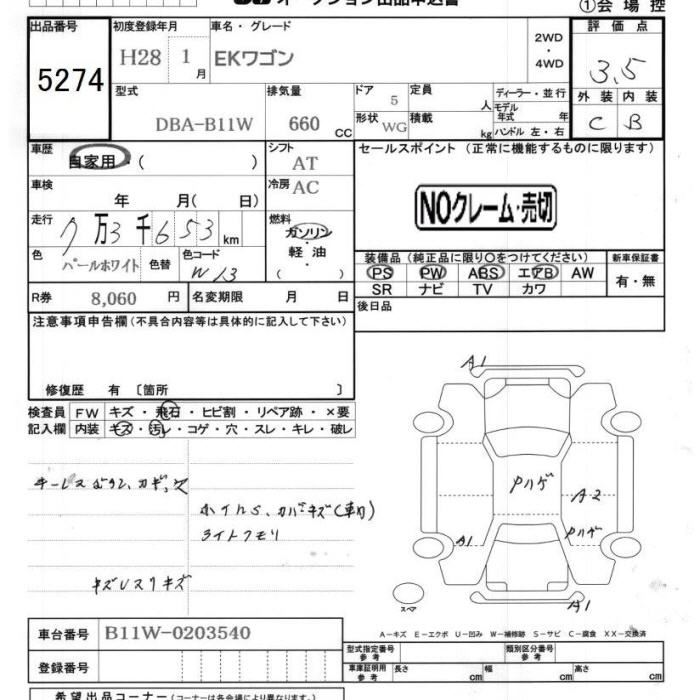 オークション出品申込書
①会場控
出品番号
5274
初度登録年月
H28 1月
車名・グレード
EKワゴン
2WD
・
4WD
評価点
3.5
外装 内装
C B
型式
DBA-B11W
排気量
660 CC
ドア 5
形状 WG
定員 人
積載 kg
ディーラー・並行
モデル年式 年
ハンドル 左・右
車歴
自家用・( )
シフト AT
車検 年 月( 日)
冷房 AC
走行 7万3千653km
燃料 ガソリン・軽油・( )
色 パールホワイト 色替
色コード W13
R券 8,060 円
名変期限 月 日
セールスポイント (正常に機能するものに限ります)
NOクレーム・売切
装備品 (純正品に限り○をつけてください)
PS PW ABS エアB AW
SR ナビ TV カワ
新車保証書
有・無
後日品
注意事項申告欄(不具合内容等は具体的に記入して下さい)
修復歴 有 〔箇所 〕
検査員記入欄
FW キズ・飛石・ヒビ割・リペア跡・×要
内装 キズ・汚レ・コゲ・穴・スレ・キレ・破レ
キーレスボタン、カギ、欠
ホイルS、カバーキズ(車内)
ライトクモリ
キズレスリキズ
A1
Pハゲ
A2
A1
Pハゲ
A1
スペア
A-キズ E-エクボ U-凹み W-補修跡 S-サビ C-腐食 XX-交換済
車台番号 B11W-0203540
登録番号
型式指定番号 参考
類別区分番号 参考
車庫証明用 参考
長さ cm 幅 cm 高さ cm
希望出品コーナー(コーナーは各会場により異なります)